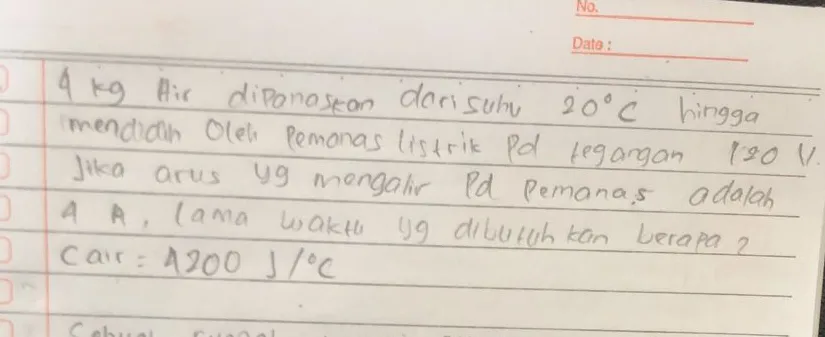 No.
Date :
4 kg Air dipanaskan dari suhu 20°C hingga
mendidih Oleh Pemanas listrik Pd tegangan 120 V.
Jika arus yg mengalir Pd Pemanas adalah
4 A, lama waktu yg dibutuhkan berapa?
C air = 4200 J/°C